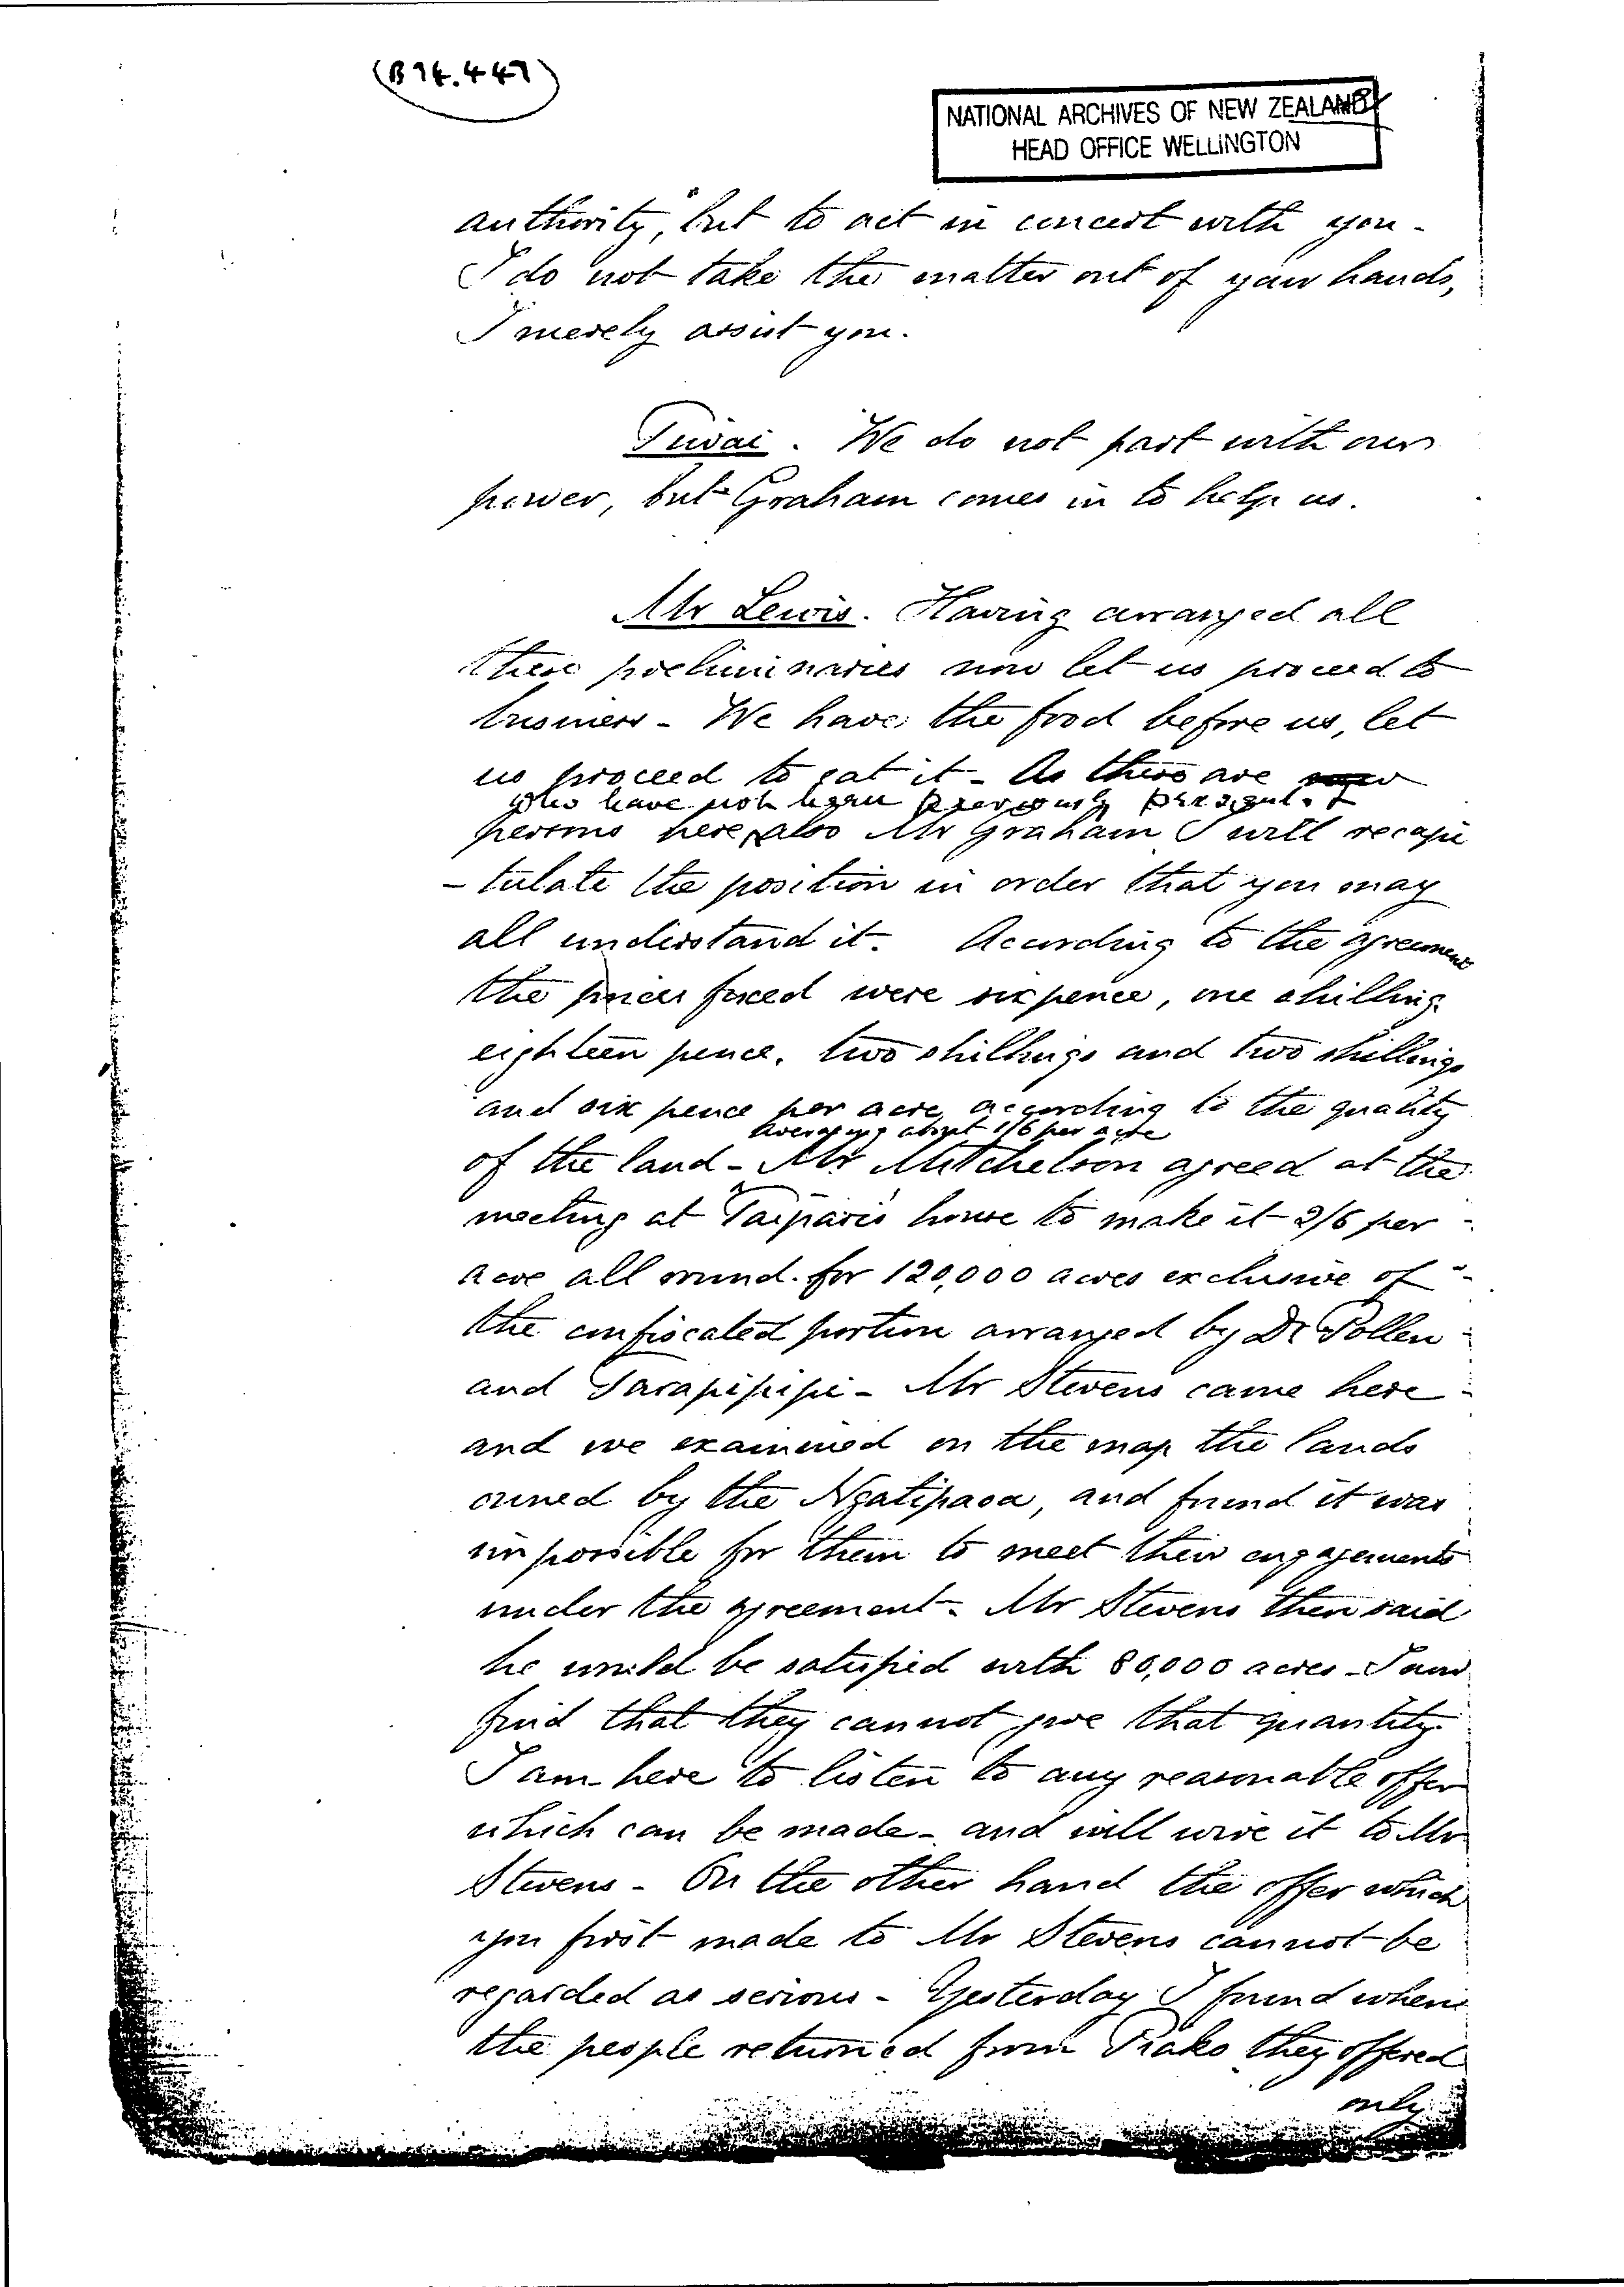 (B 94.447)
NATIONAL ARCHIVES OF NEW ZEALAND
HEAD OFFICE WELLINGTON
authority, but to act in concert with you -
I do not take the matter out of your hands,
I merely assist you.
Tiwai. We do not part with our
power, but Graham comes in to help us.
Mr Lewis. Having arranged all
these preliminaries now let us proceed to
business - We have the food before us, let
us proceed to eat it - As there are
who have not been previously present. &
persons here, also Mr Graham I will recapi
- tulate the position in order that you may
all understand it. According to the agreement
the prices fixed were sixpence, one shilling
eighteen pence, two shillings and two shillings
and six pence per acre, according to the quality
averaging about 1/6 per acre
of the land - Mr Mitchelson agreed at the
meeting at Taipari's house to make it 2/6 per
acre all round. for 120,000 acres exclusive of
the confiscated portion arranged by Dr Pollen
and Tarapipipi - Mr Stevens came here
and we examined on the map the lands
owned by the Ngatipaoa, and found it was
impossible for them to meet their engagements
under the agreement - Mr Stevens then said
he would be satisfied with 80,000 acres - I now
find that they cannot give that quantity.
I am here to listen to any reasonable offer
which can be made - and will wire it to Mr
Stevens - On the other hand the offer which
you first made to Mr Stevens cannot be
regarded as serious - Yesterday I found when
the people returned from Piako they offered
only